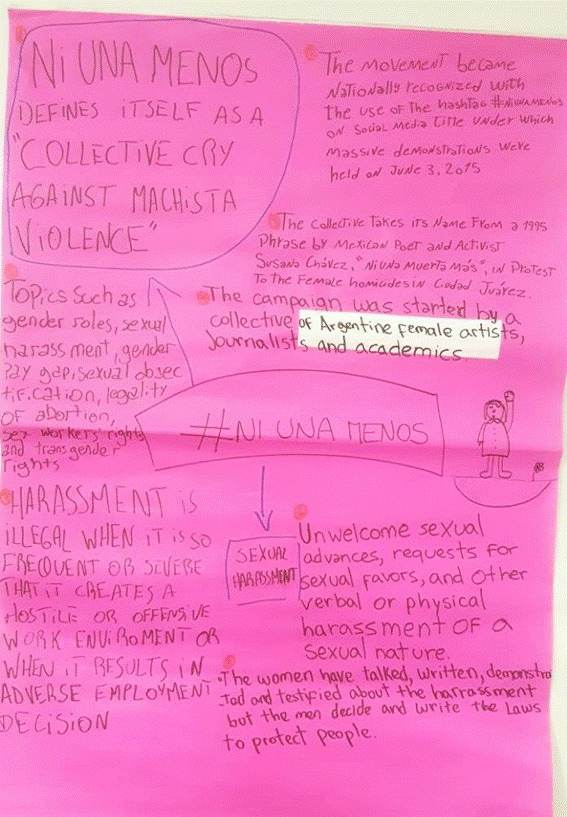 NI UNA MENOS
DEFINES ITSELF AS A
"COLLECTIVE CRY
AGAINST MACHISTA
VIOLENCE"
The MOVEMENT became
Nationally recognized with
the use of the hashtag #NIUNAMENOS
on social media title under which
massive demonstrations were
held on June 3, 2015
The collective takes its name from a 1995
Phrase by Mexican Poet and Activist
Susana Chávez, "Ni una Muerta Más", in Protest
To the Female homicides in Ciudad Juárez.
The campaign was started by a
collective of Argentine female artists,
journalists and academics.
Topics such as
gender roles, sexual
harassment, gender
pay gap, sexual objec
tification, legality
of abortion,
sex workers' rights
and transgender
rights
#NI UNA MENOS
HARASSMENT is
illegal WHEN it is so
FREQUENT OR SEVERE
THAT iT CREATES A
HOSTILE OR OFFENSIVE
WORK ENVIROMENT OR
WHEN iT RESULTS IN
ADVERSE EMPLOYMENT
DECISION
SEXUAL
HARASSMENT
Unwelcome sexual
advances, requests for
sexual favors, and other
verbal or physical
harassment of a
sexual nature.
The women have talked, written, demonstra
-Tad and testified about the harrassment
but the men decide and write the laws
to protect people.